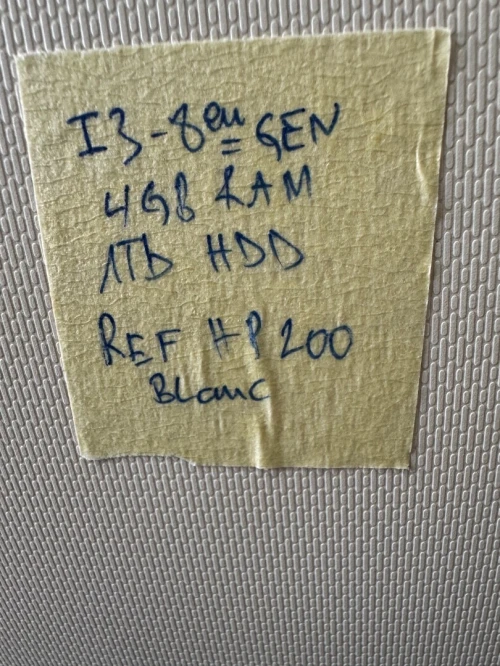 I3-8eu GEN
4GB RAM
1TB HDD
REF HP 200
Blanc